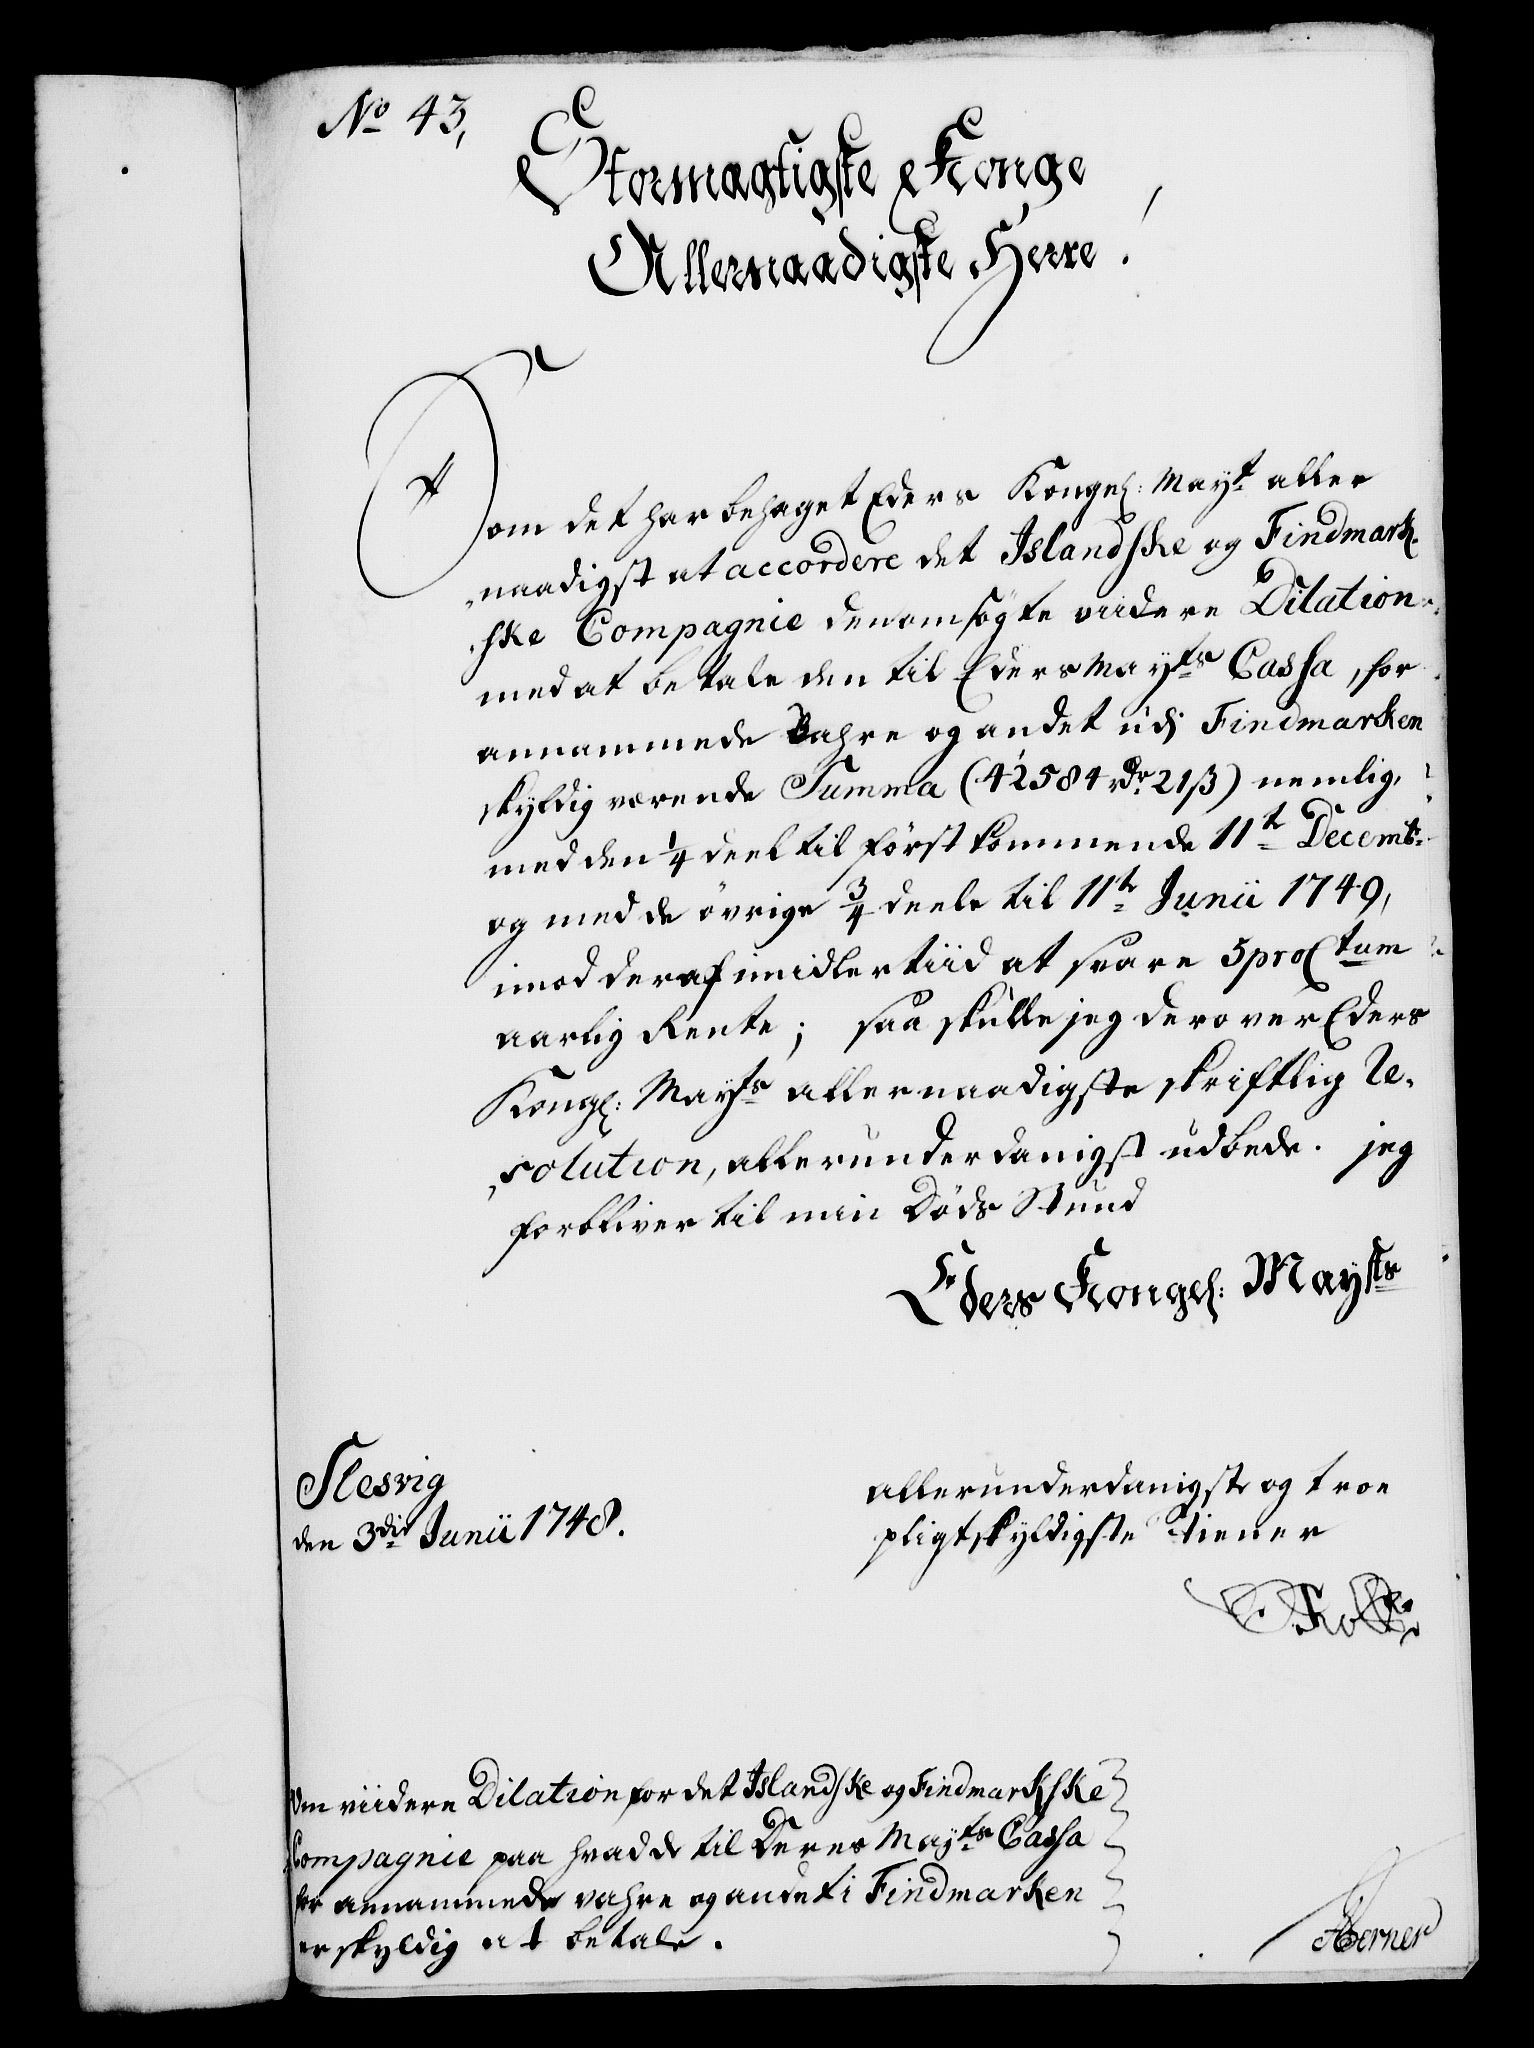 No 43,
Stormægtigste Konge
Allernaadigste Herre!
Som det har behaget Eders Kongel: Mayt aller
naadigst at accordere det Islandske og Findmark-
ske Compagnie den omsögte viidere Dilation
med at betale den til Eders Mayts Cassa, for
annammede Vahre og andet udj Findmarken
skyldig værende Summa (42584 rdr 21 β) nemlig,
med den 1/4 deel til förstkommende 11te Decembr
og med de övrige 3/4 deele til 11te Junii 1749,
imod deraf imidlertiid at svare 5 pro Ctum
aarlig Rente; saa skulle jeg derover Eders
Kongl: Mayts allernaadigste skriftlig Re-
solution, allerunderdanigst udbede. jeg
forbliver til min Döds Stund
Eders Kongel: Mayts
Slesvig
den 3die Junii 1748.
allerunderdanigste og troe
pligtskyldigste tiener
Om viidere Dilation for det Islandske og Findmarkske
Compagnie paa hvad de til Deres Mayts Cassa
for annammede vahre og andet i Findmarken
er skyldig at betale.